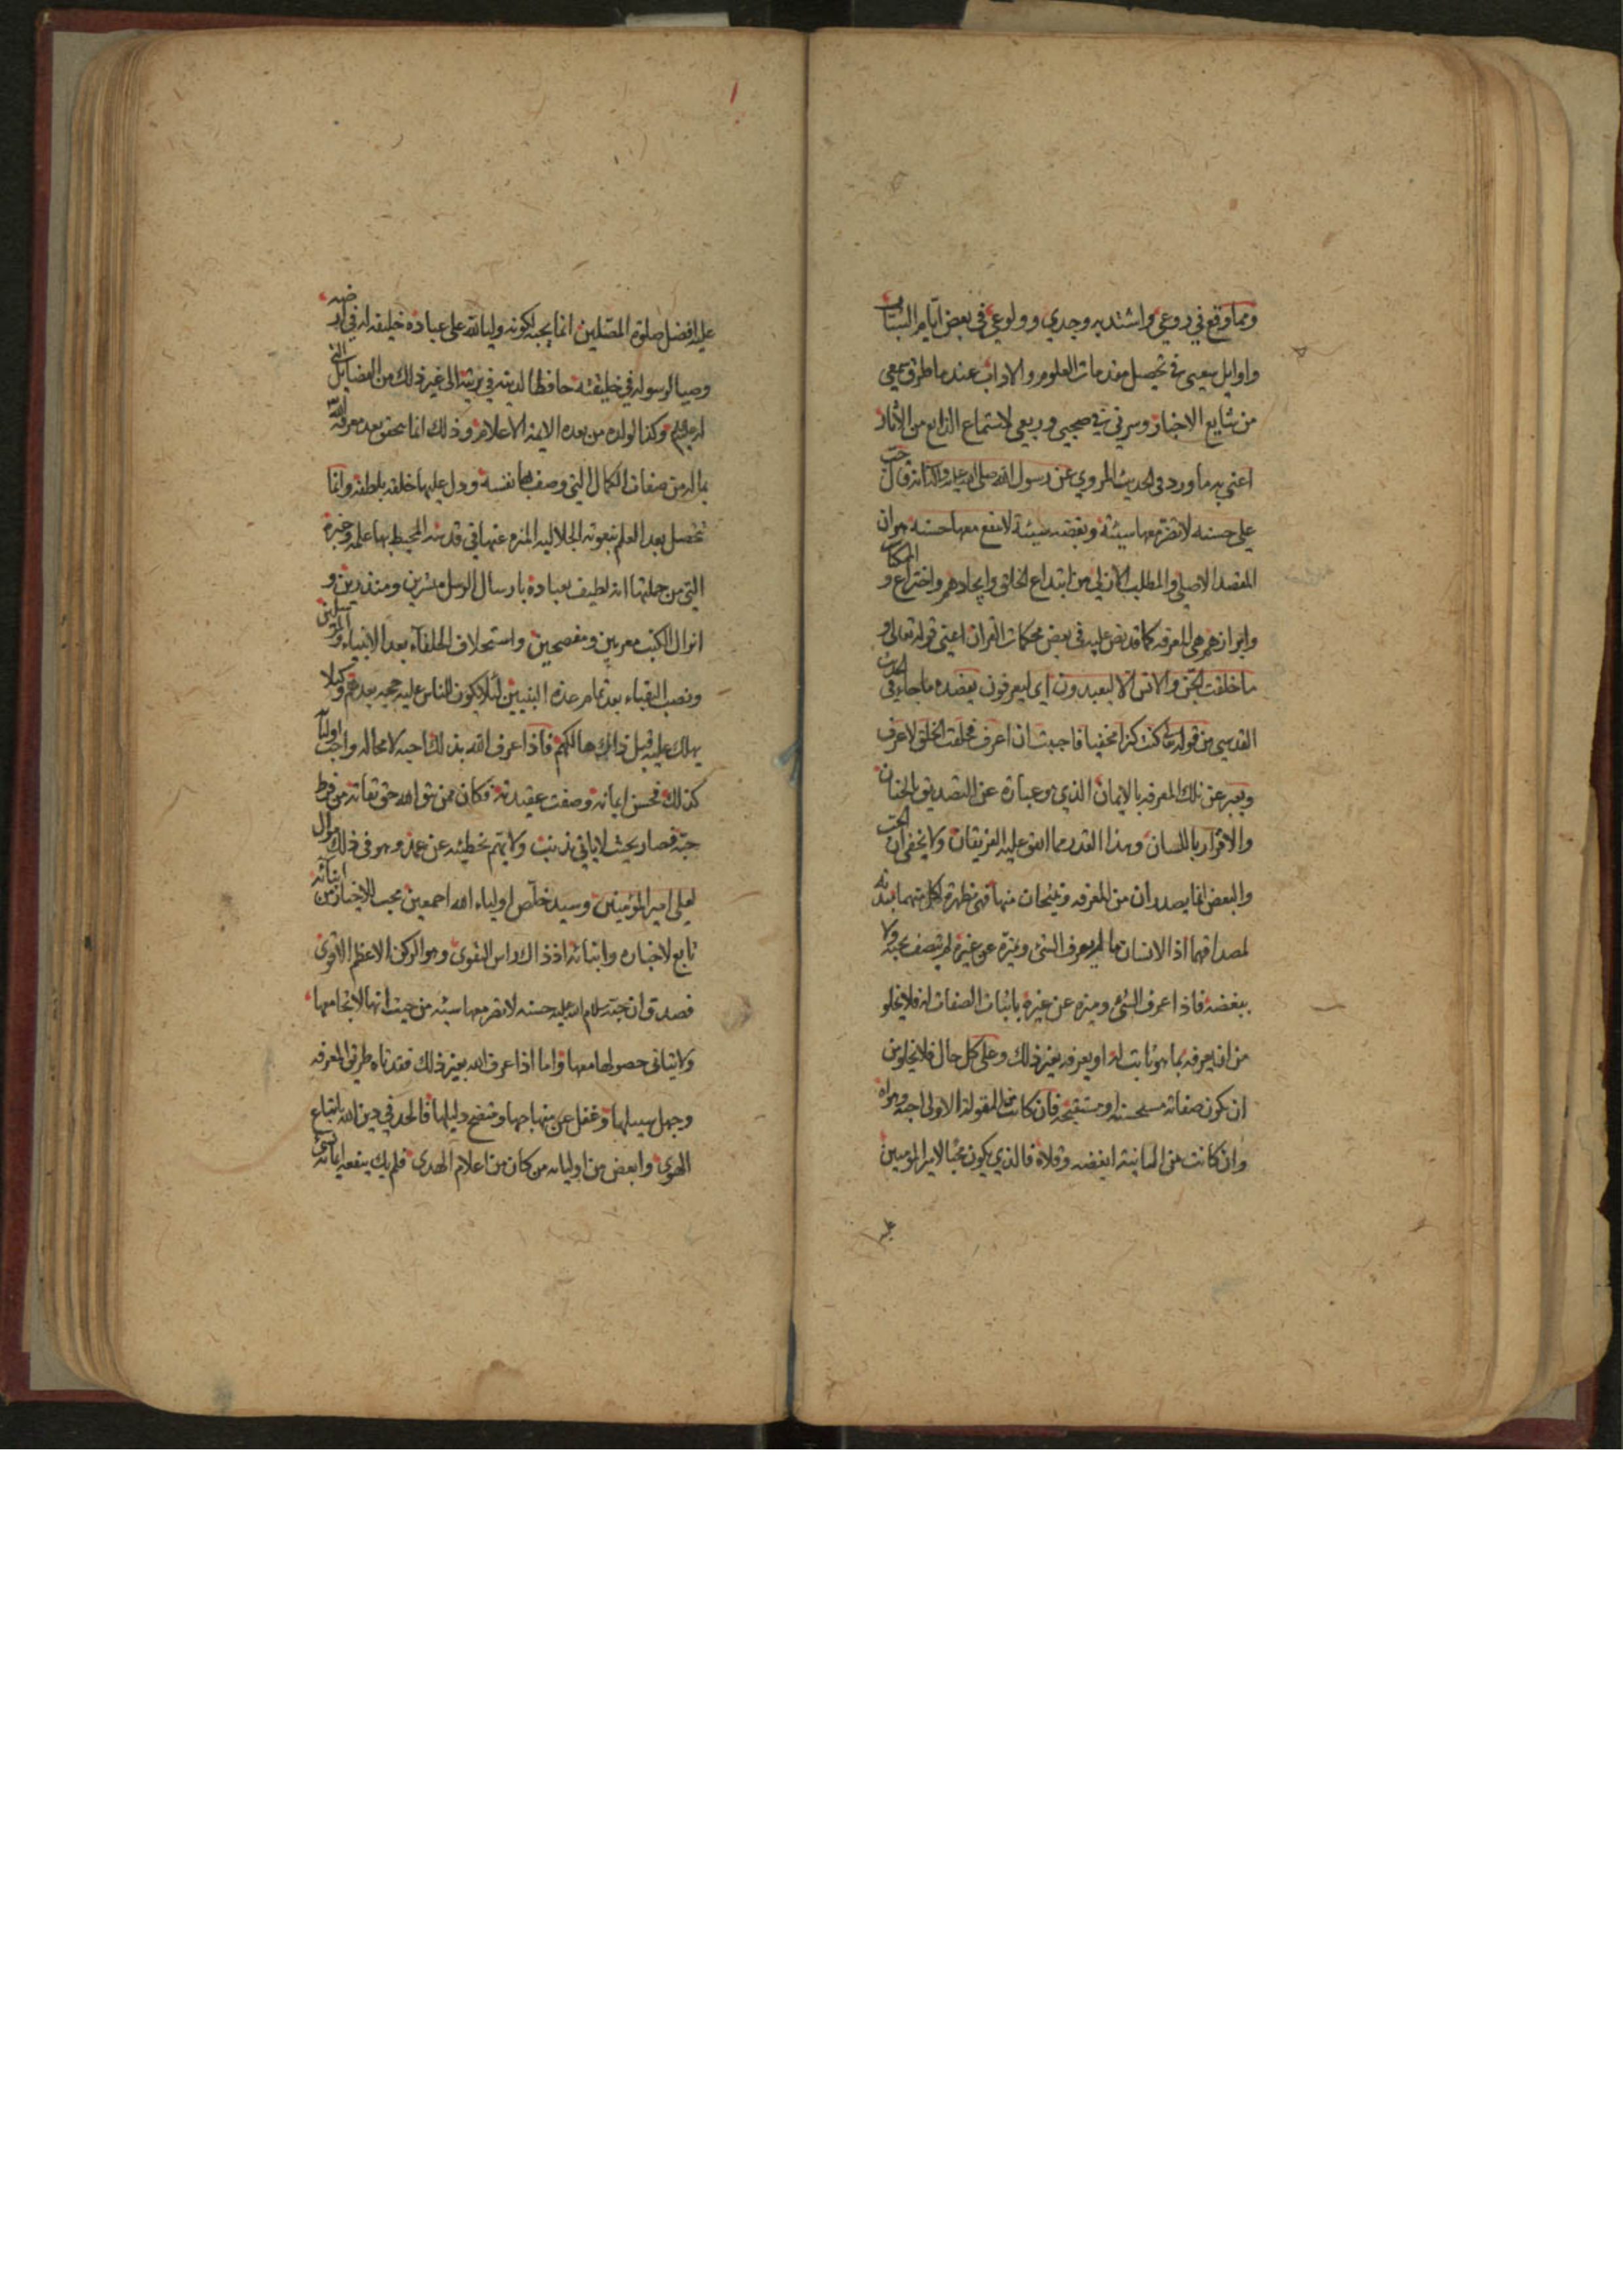 ومما وقع في روعي واشتد به وجدي وولوعي في بعض ايام الشباب
واوايل سعيي في تحصيل مقدمات العلوم والاداب عند ما طرق سمعي
من شايع الاخبار وسرني في ربيعي لاستماع الذايع من الاثار
اعني به ما ورد في الحديث المروي عن رسول الله صلى الله عليه واله انه قال حب
علي حسنة لا تضر معها سيئة وبغضه سيئة لا تنفع معها حسنة هو ان
المقصد الاصلي والمطلب من ابتداع الخلق وايجادهم واختراع المكان و
وابرازهم هي المعرفه كما قد نص عليه في بعض محكمات القران اعني قوله تعالى و
ما خلقت الجن والانس الا ليعبدون اي ليعرفون يعضده ما جاء في الحديث
القدسي من قوله كنت كنزا مخفيا فاحببت ان اعرف فخلقت الخلق لاعرف
ويعبر عن تلك المعرفه بالايمان الذي هو عبارة عن التصديق بالجنان
والاقرار باللسان وهذا القدر مما اتفق عليه الفريقان ولا يخفى ان الحب
والبغض انما يصدران من المعرفه وينتجان منها فهي مظهرة لكل منهما
لمصداقهما اذ الانسان ما لم يعرف الشئ ويميزه عن غيره لم يتصف بحبه ولا
ببغضه فاذا عرف الشئ وميزه عن غيره باثبات الصفات له فلا يخلو
من ان يعرفه بما هو ثابت له او يعرفه بغير ذلك وعلى كل حال فلا يخلو من
ان تكون صفاته مستحسنه او مستقبحه فان كانت من المقولة الاولى احبه وهواه
وان كانت من الثانية ابغضه وقلاه فالذي يكون محبا لامير المومنين
عليه
عليه افضل صلوة المصلين انما يحبه لكونه وليا لله على عباده خليفه له في ارضه
وصيا لرسوله في خليقته حافظا لدينه في بريته الى غير ذلك من الفضايل التي
له وكذا لولده من بعده الائمة الاعلام وذلك انما يتحقق بعد معرفة الله
بما له من صفات الكمال التي وصف بها نفسه ودل عليها خلقه بلطفه وانما
تحصل بعد العلم بنعوته الجلاليه المنزه عنها في قدسه المحيط بها علمه وخبره
التي من جملتها انه لطيف بعباده بارسال الرسل مبشرين ومنذرين و
انزال الكتب معربين ومفصحين واستخلاف الخلفاء بعد الانبياء والمرسلين
ونصب النقباء بعد تمام عدة النبيين لئلا يكون للناس عليه حجه بعدهم وكيلا
يهلك عليه قبل ذلك هالكهم فاذا عرف الله بذلك احبه لا محاله واحب اولياء
كذلك فحسن ايمانه وصفت عقيدته فكان ممن يتق الله حق تقاته من فرط
حبه فصار بحيث لا ياتي بذنب ولا يهتم بخطيئه عن عمد وهو في ذلك موال
لعلي امير المؤمنين وسيد خلص اولياء الله اجمعين محب للاخيار من ابنائه
تابع لاخباره وانبائه اذ ذاك راس التقوى وهو الركن الاعظم الاقوى
فصدق ان حبه سلام الله عليه حسنه لا تضر معها سيئه من حيث انها لا تجامعها
ولا يتاتى حصولها معها واما اذا عرف الله بغير ذلك فقد تاه طريق المعرفه
وجهل سبيلها وغفل عن منهاجها ومتضح دليلها فالحد في دين الله باتباع
الهوى وابغض من اوليائه من كان من اعلام الهدى فلم يك ينفعه ايمانه